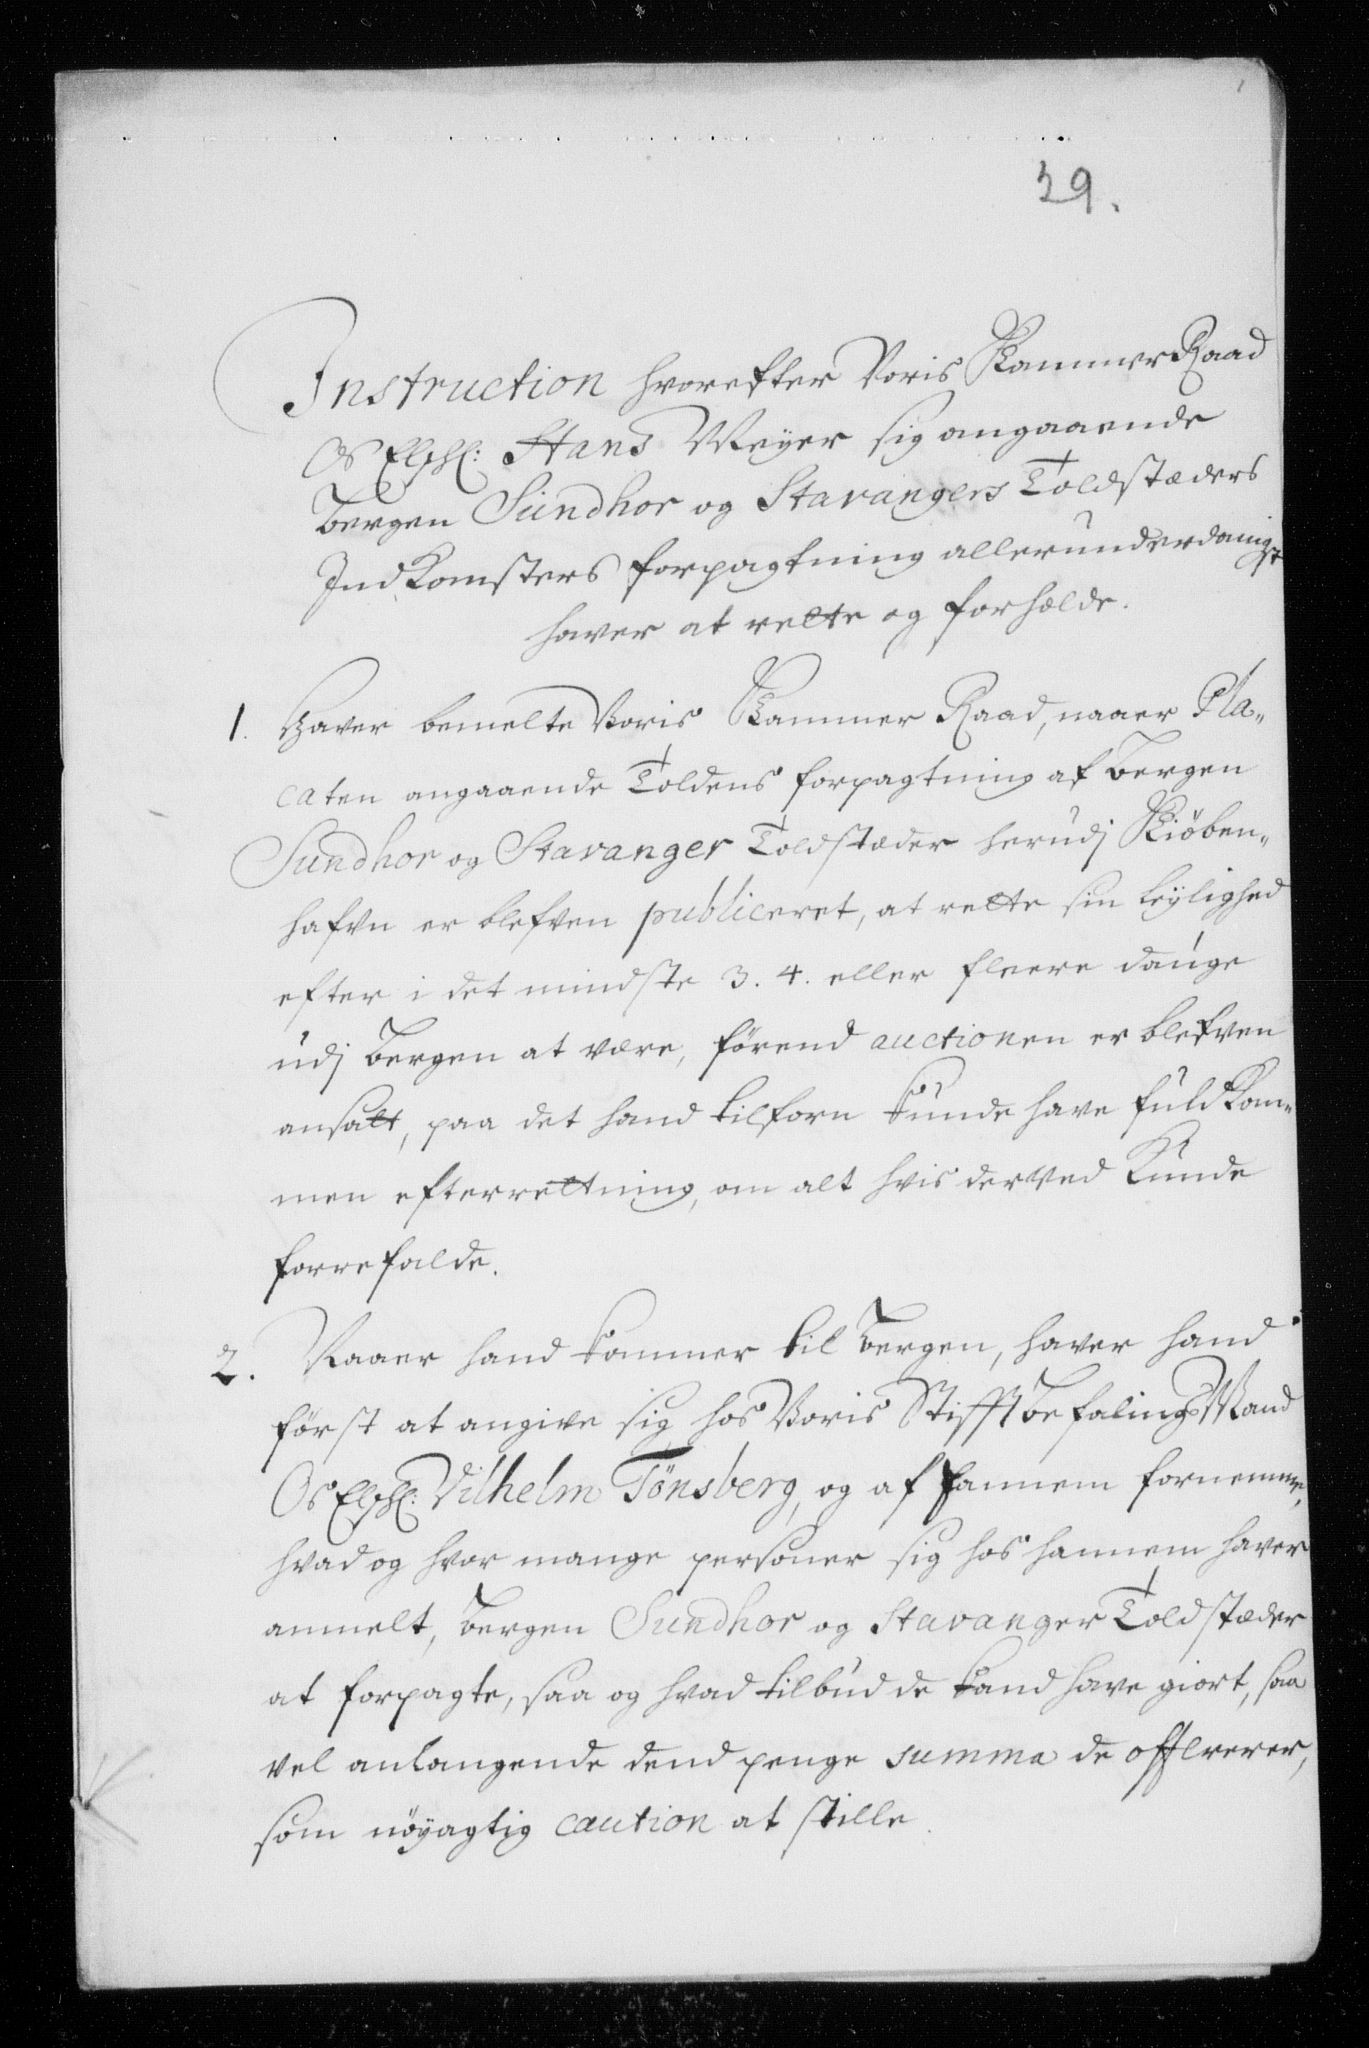 29.
Instruction hvorefter Voris Kammer Raad
Os Elschl: Hans Meÿer sig angaaende
Bergen Sundhor og Stavangers Toldstæders
Indkomsters forpagtning allerunderdanigst
haver at rette og forholde.
1. Haver bemelte Voris Kammer Raad, naaer Pla-
caten angaaende Toldens forpagtning af Bergen
Sundhor og Stavanger Toldstæder herudj Kiöben-
hafvn er blefven publiceret, at rette sin leÿlighed
efter i det mindste 3. 4. eller fleere dauge
udj Bergen at være, förend auctionen er blefven
ansatt, paa det hand tilforn kunde have fuldkom-
men efterrettning, om alt hvis derved kunde
forrefalde.
2. Naaer hand kommer til Bergen, haver hand
först at angive sig hos Voris Stifftbefalings Mand
Os Elschl: Vilhelm Tönsberg, og af hannem fornemme,
hvad og hvor mange personer sig hos hannem haver
anmelt, Bergen Sundhor og Stavanger Toldstæder
at forpagte, saa og hvad tilbud de kand have giort, saa
vel anlangende dend penge summa de offererer,
som nöÿagtig caution at stille.